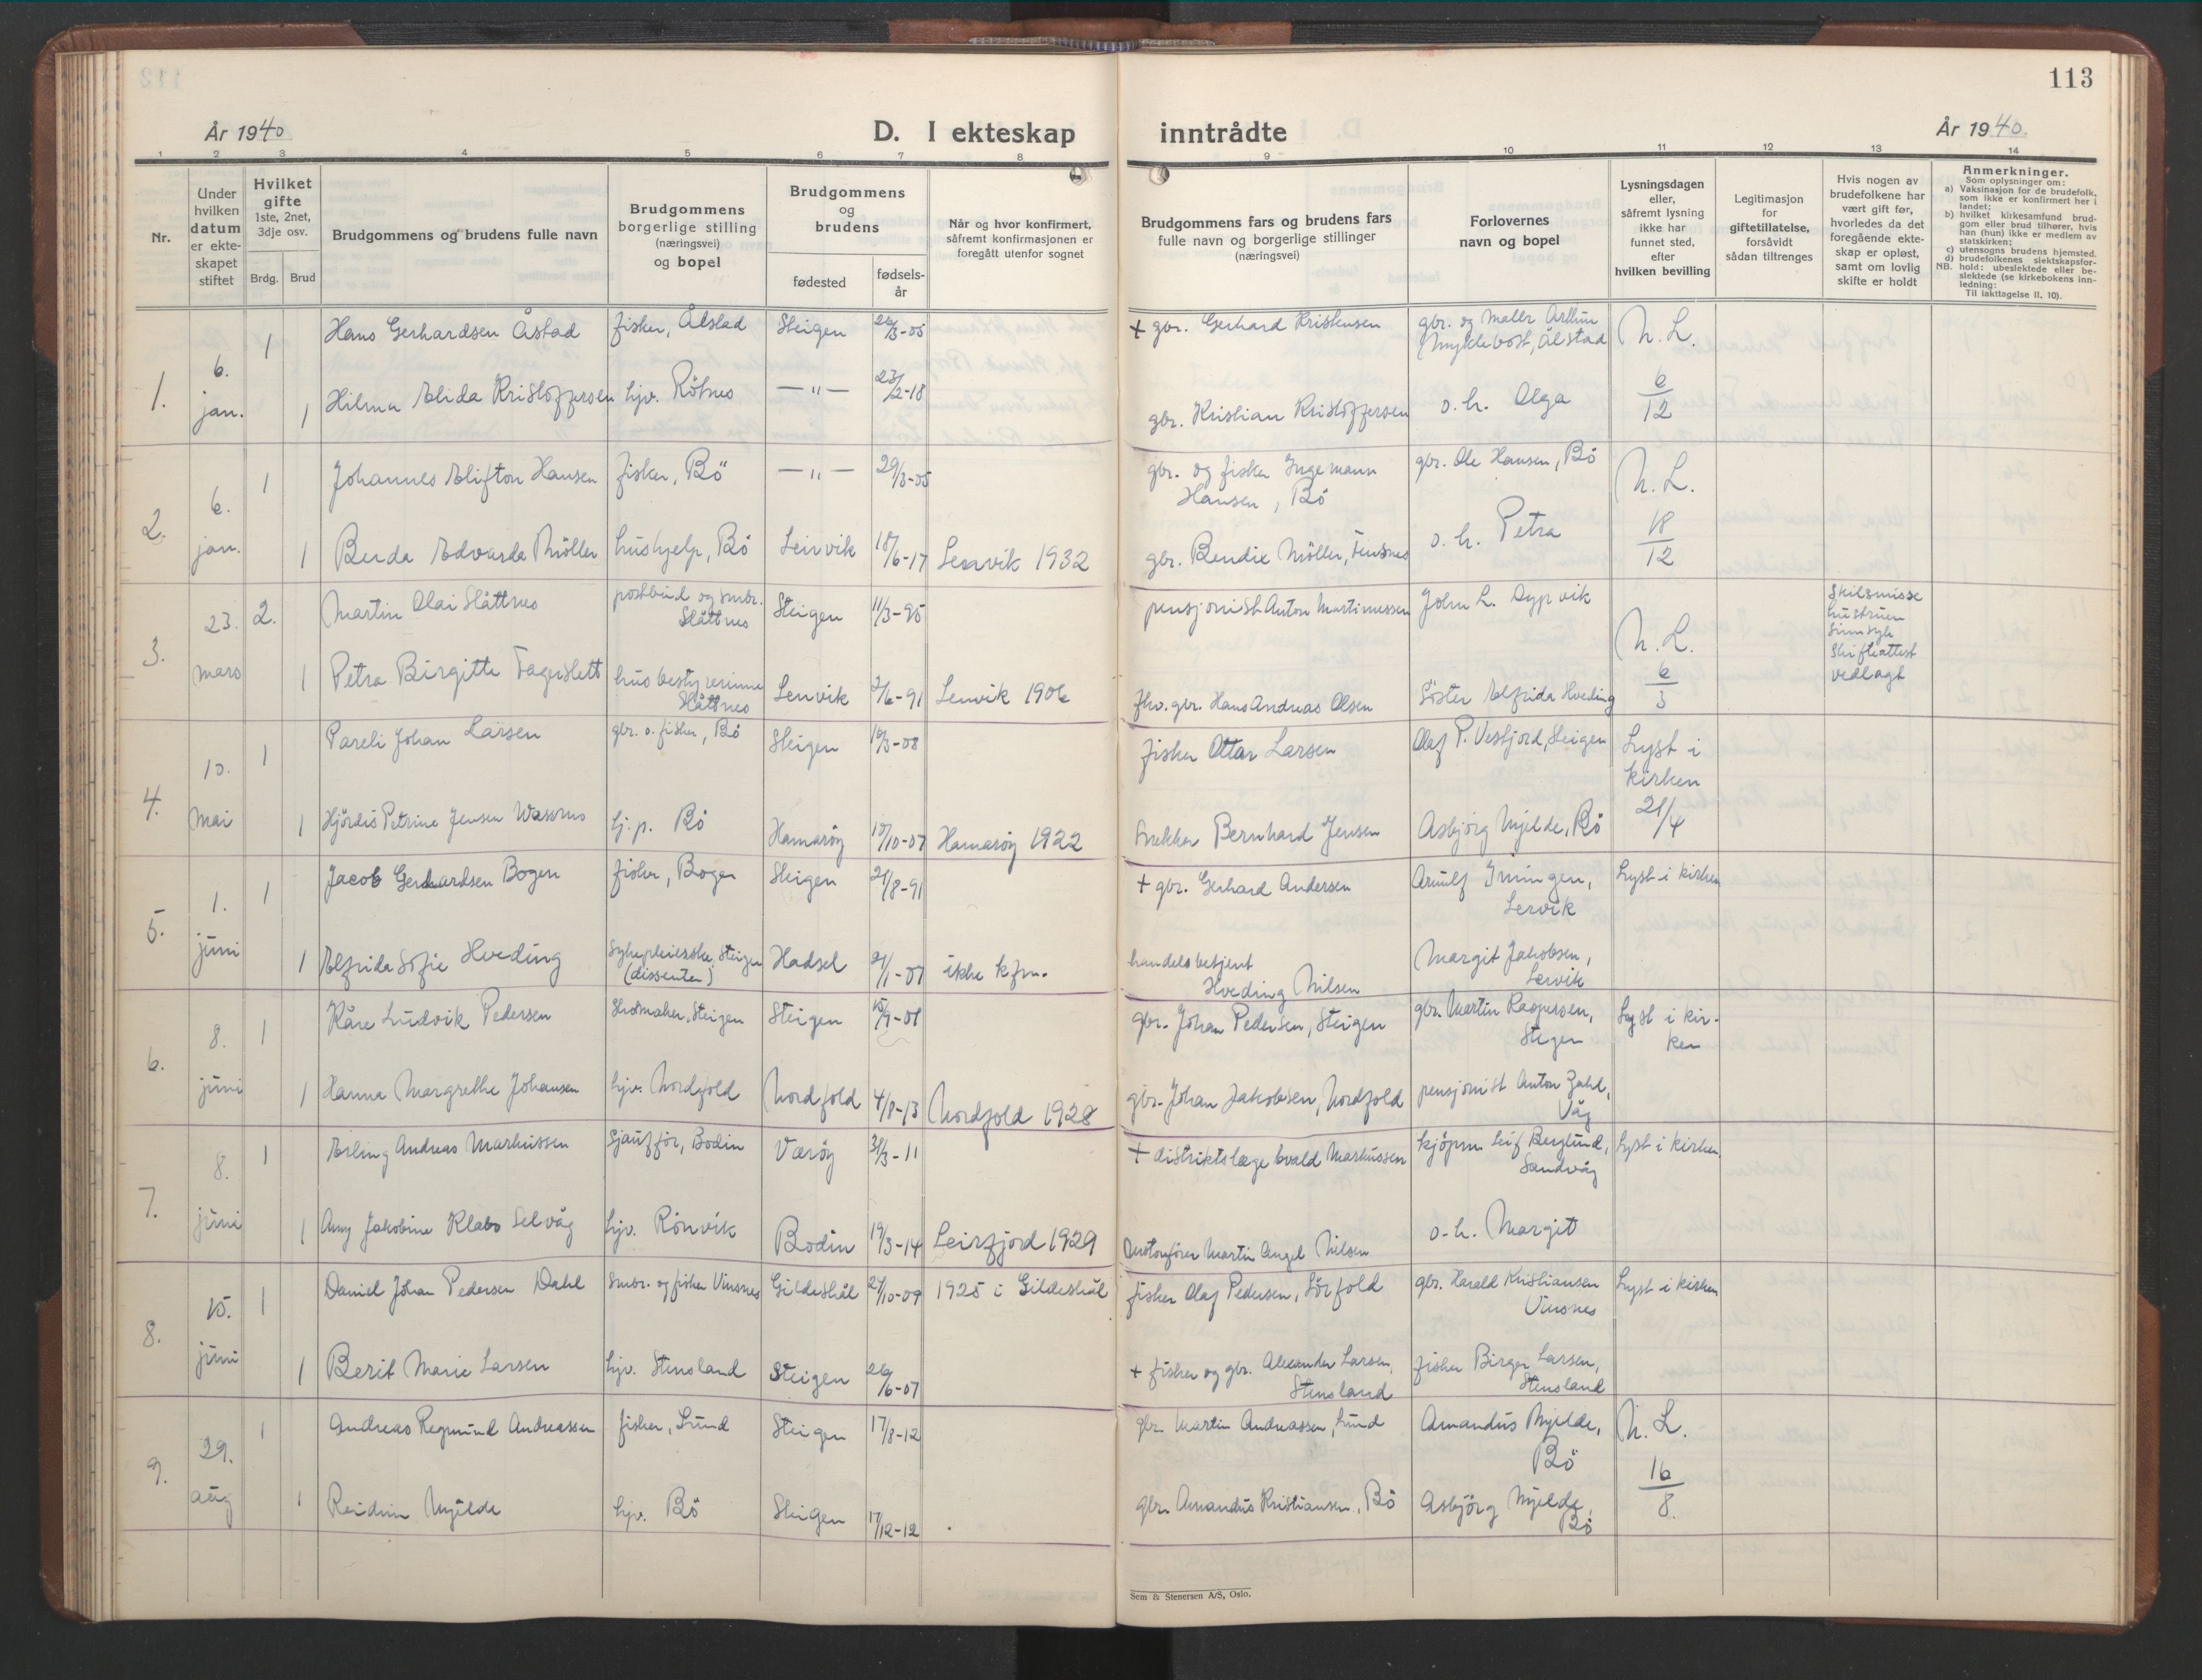 113
År 1940
D. I ekteskap inntrådte
År 1940.
1 2 3 4 5 6 7 8 9 10 11 12 13 14
Nr.
Under hvilken datum er ekteskapet stiftet
Hvilket gifte
1ste, 2net, 3dje osv.
Brdg. Brud
Brudgommens og brudens fulle navn
Brudgommens borgerlige stilling (næringsvei) og bopel
Brudgommens og brudens
fødested
fødselsår
Når og hvor konfirmert, såfremt konfirmasjonen er foregått utenfor sognet
Brudgommens fars og brudens fars fulle navn og borgerlige stillinger (næringsvei)
Forlovernes navn og bopel
Lysningsdagen eller, såfremt lysning ikke har funnet sted, efter hvilken bevilling
Legitimasjon for giftetillatelse, forsåvidt sådan tiltrenges
Hvis nogen av brudefolkene har vært gift før, hvorledes da det foregående ekteskap er opløst, samt om lovlig skifte er holdt
Anmerkninger.
Som oplysninger om:
a) Vaksinasjon for de brudefolk, som ikke er konfirmert her i landet;
b) hvilket kirkesamfund brudgom eller brud tilhører, hvis han (hun) ikke er medlem av statskirken;
c) utensogns brudens hjemsted.
d) brudefolkenes slektskapsforhold: ubeslektede eller beslektede (se kirkebokens innledning:
NB. Til iakttagelse II. 10).
1. 6. jan. 1 Hans Gerhardsen Åstad fisker, Ålstad Steigen 26/3-05 + gbr. Gerhard Kristensen gbr. og møller Arthur Myklebost, Ålstad N. L. 6/12
1 Hilma Elida Kristoffersen hjv. Röhnes — " — 23/2-18 gbr. Kristian Kristoffersen o. h. Olga
2. 6. jan. 1 Johannes Elifton Hansen fisker, Bö — " — 29/3-05 gbr. og fisker Ingemann Hansen, Bö gbr. Ole Hansen, Bö N. L. 18/12
1 Berda Edvarda Möller hushjelp, Bö Lenvik 18/6-17 Lenvik 1932 gbr. Bendix Möller, Finsnes o. h. Petra
3. 23. mars 2. Martin Olai Slåttnes postbud og smbr. Slåttnes Steigen 11/3-95 pensjonist Anton Martinussen John L. Dypvik N. L. 6/3 Skilsmisse hustruen sinnsyk Skifteattest vedlagt
1 Petra Birgitte Fagerslett husbestyrerinne Slåttnes Lenvik 2/6-91 Lenvik 1906 fhv. gbr. Hans Andreas Olsen Söster Elfrida Hveding
4. 10. mai 1 Pareli Johan Larsen gbr. o. fisker, Bö Steigen 16/3-08 fisker Ottar Larsen Olaf P. Vesfjord, Steigen Lyst i kirken 21/4
1 Hjördis Petrine Jensen hj. p. Bö Hamaröy 15/10-07 Hamaröy 1922 snekker Bernhard Jensen Asbjörg Mjelde, Bö
5. 1. juni 1 Jacob Gerhardsen Bogen fisker, Bogen Steigen 21/8-91 + gbr. Gerhard Andersen Arnulf Iningen, Lervik Lyst i kirken
1 Elfrida Sofie Hveding Sykepleierske, Steigen (dissenter) Hadsel 21/1-07 ikke kfm. handelsbetjent Hveding Nilsen Margit Jakobsen, Lervik
6. 8. juni 1 Kåre Ludvik Pedersen Skomaker, Steigen Steigen 15/9-08 gbr. Johan Pedersen, Steigen gbr. Martin Kaspersen, Steigen Lyst i kirken
1 Hanna Margrethe Johansen hjv. Nordfold Nordfold 4/8-13 Nordfold 1928 gbr. Johan Jakobsen, Nordfold pensjonist Anton Zahl, Våg
7. 8. juni 1 Erling Andreas Markussen Sjauffør, Bodin Værøy 31/3-11 + distriktslæge Evald Markussen kjöpm. Leif Berglund, Sandvåg Lyst i kirken.
1 Amy Jakobine Klabo Selvåg hjv. Rönvik Bodin 19/3-14 Leirfjord 1929 Martin Angel Nilsen o. h. Margit
8. 15. juni 1 Daniel Johan Pedersen Dahl smbr. og fisker Vinsnes Gildeskål 27/10-09 1925 i Gildeskål fisker Olaf Pedersen, Sörfold gbr. Harald Kristiansen Vinsnes Lyst i kirken
1 Berit Marie Larsen hjv. Stensland Steigen 26/6-07 + fisker og gbr. Alexander Larsen, Stensland fisker Birger Larsen, Stensland
9. 29. aug 1 Andreas Regmund Andreassen fisker, Lund Steigen 17/8-12 gbr. Martin Andreassen, Lund Amandus Mjelde, Bö N. L. 16/8.
1 Reidun Mjelde hjv. Bö Steigen 17/12-12 gbr. Amandus Kristiansen, Bö Asbjörg Mjelde, Bö
Sem & Stenersen A/S, Oslo.